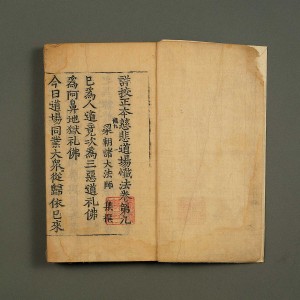 詳挍正本慈悲道場懺法卷第九
梁朝諸大法師 集撰
已爲人道竟次爲三惡道礼佛
爲阿鼻地獄礼佛
今日道場同業大衆從歸依已來